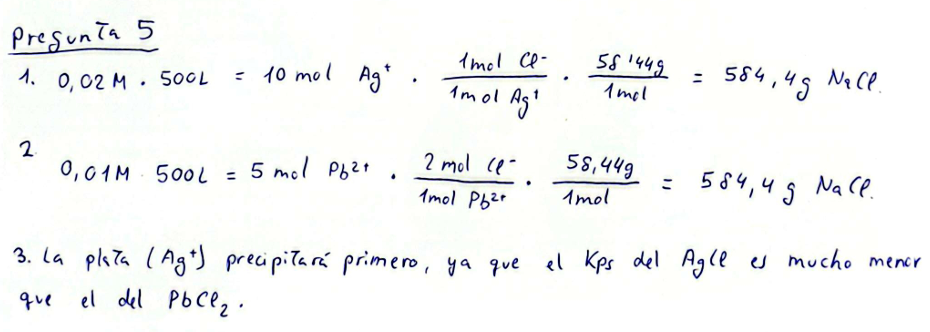 Pregunta 5
1. 0,02M · 500L = 10 mol Ag⁺ · 1mol Cl⁻ / 1mol Ag⁺ · 58'44g / 1mol = 584,4g NaCl.
2 0,01M · 500L = 5 mol Pb²⁺ · 2 mol Cl⁻ / 1mol Pb²⁺ · 58,44g / 1mol = 584,4 g NaCl.
3. La plata (Ag⁺) precipitará primero, ya que el Kps del AgCl es mucho menor
que el del PbCl₂.